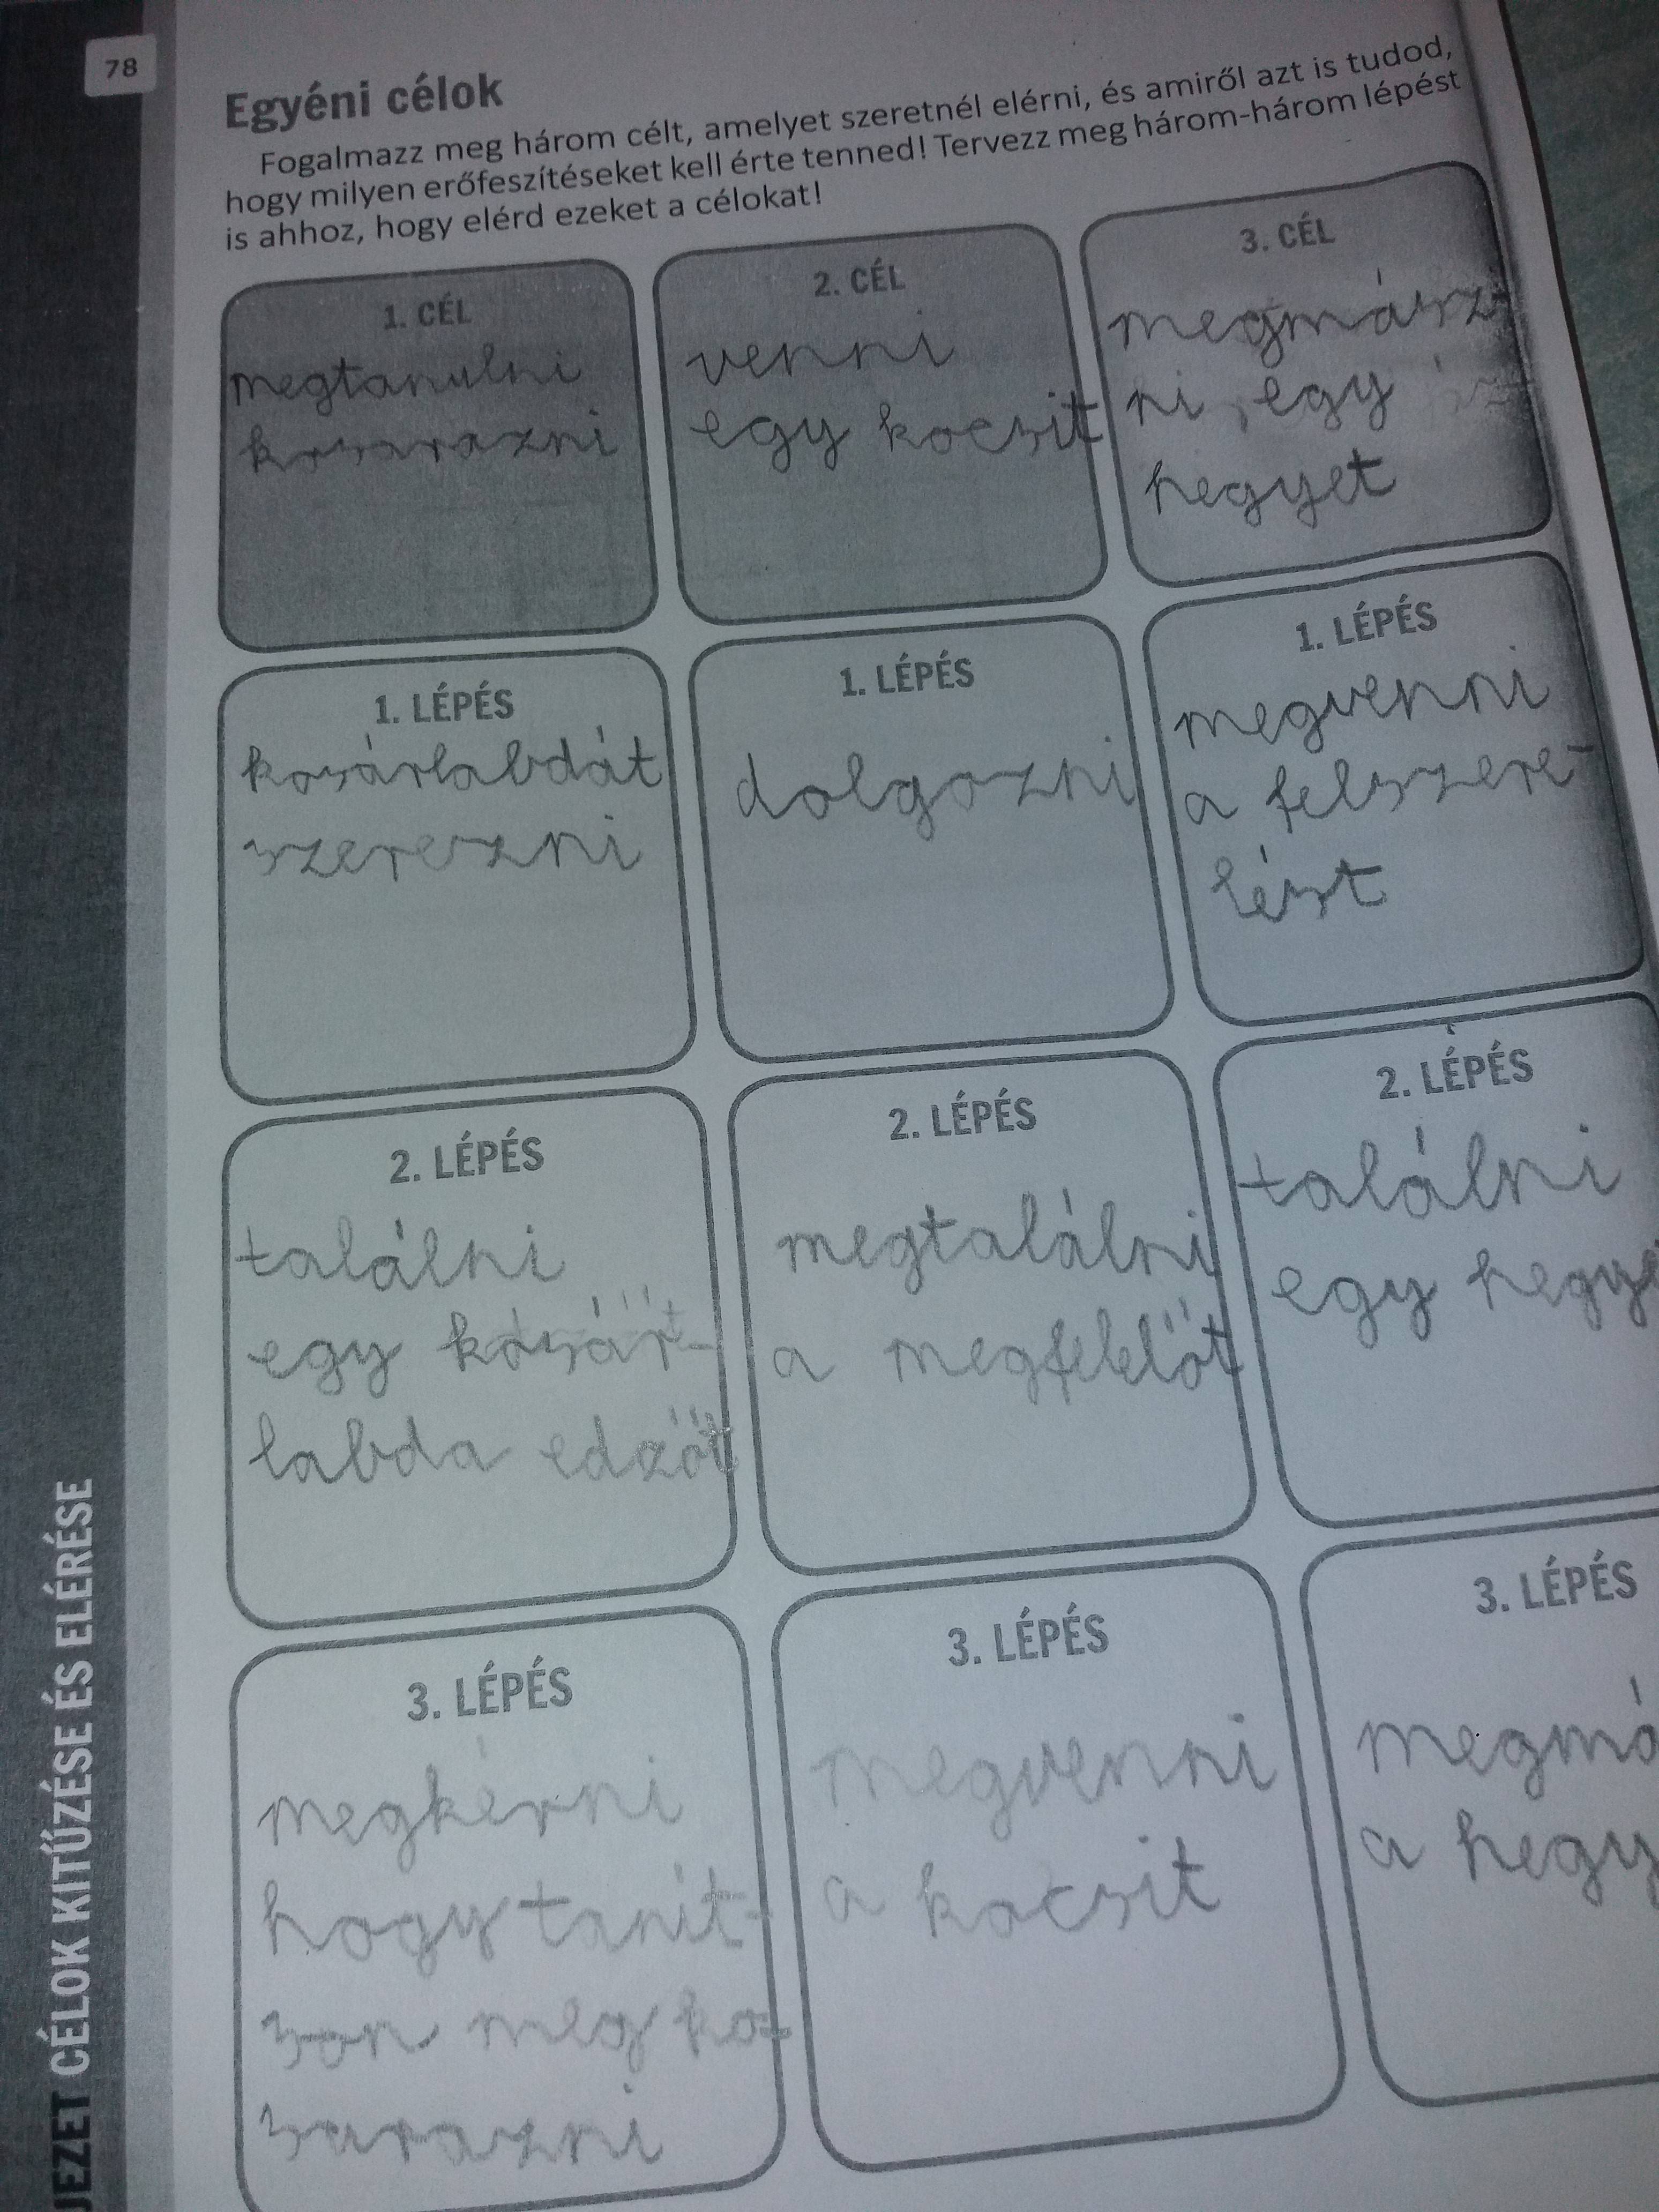 78
Egyéni célok
Fogalmazz meg három célt, amelyet szeretnél elérni, és amiről azt is tudod,
hogy milyen erőfeszítéseket kell érte tenned! Tervezz meg három-három lépést
is ahhoz, hogy elérd ezeket a célokat!
1. CÉL
megtanulni
kosarazni
2. CÉL
venni
egy kocsit
3. CÉL
megmász-
ni egy
hegyet
1. LÉPÉS
kosárlabdát
szerezni
1. LÉPÉS
dolgozni
1. LÉPÉS
megvenni
a felszere-
lést
2. LÉPÉS
találni
egy kosár-
labda edzőt
2. LÉPÉS
megtalálni
a megfelelőt
2. LÉPÉS
találni
egy hegye
3. LÉPÉS
megkérni
hogy tanit-
son meg ko-
sarazni
3. LÉPÉS
megvenni
a kocsit
3. LÉPÉS
megmá
a hegy
JEZET CÉLOK KITŰZÉSE ÉS ELÉRÉSE